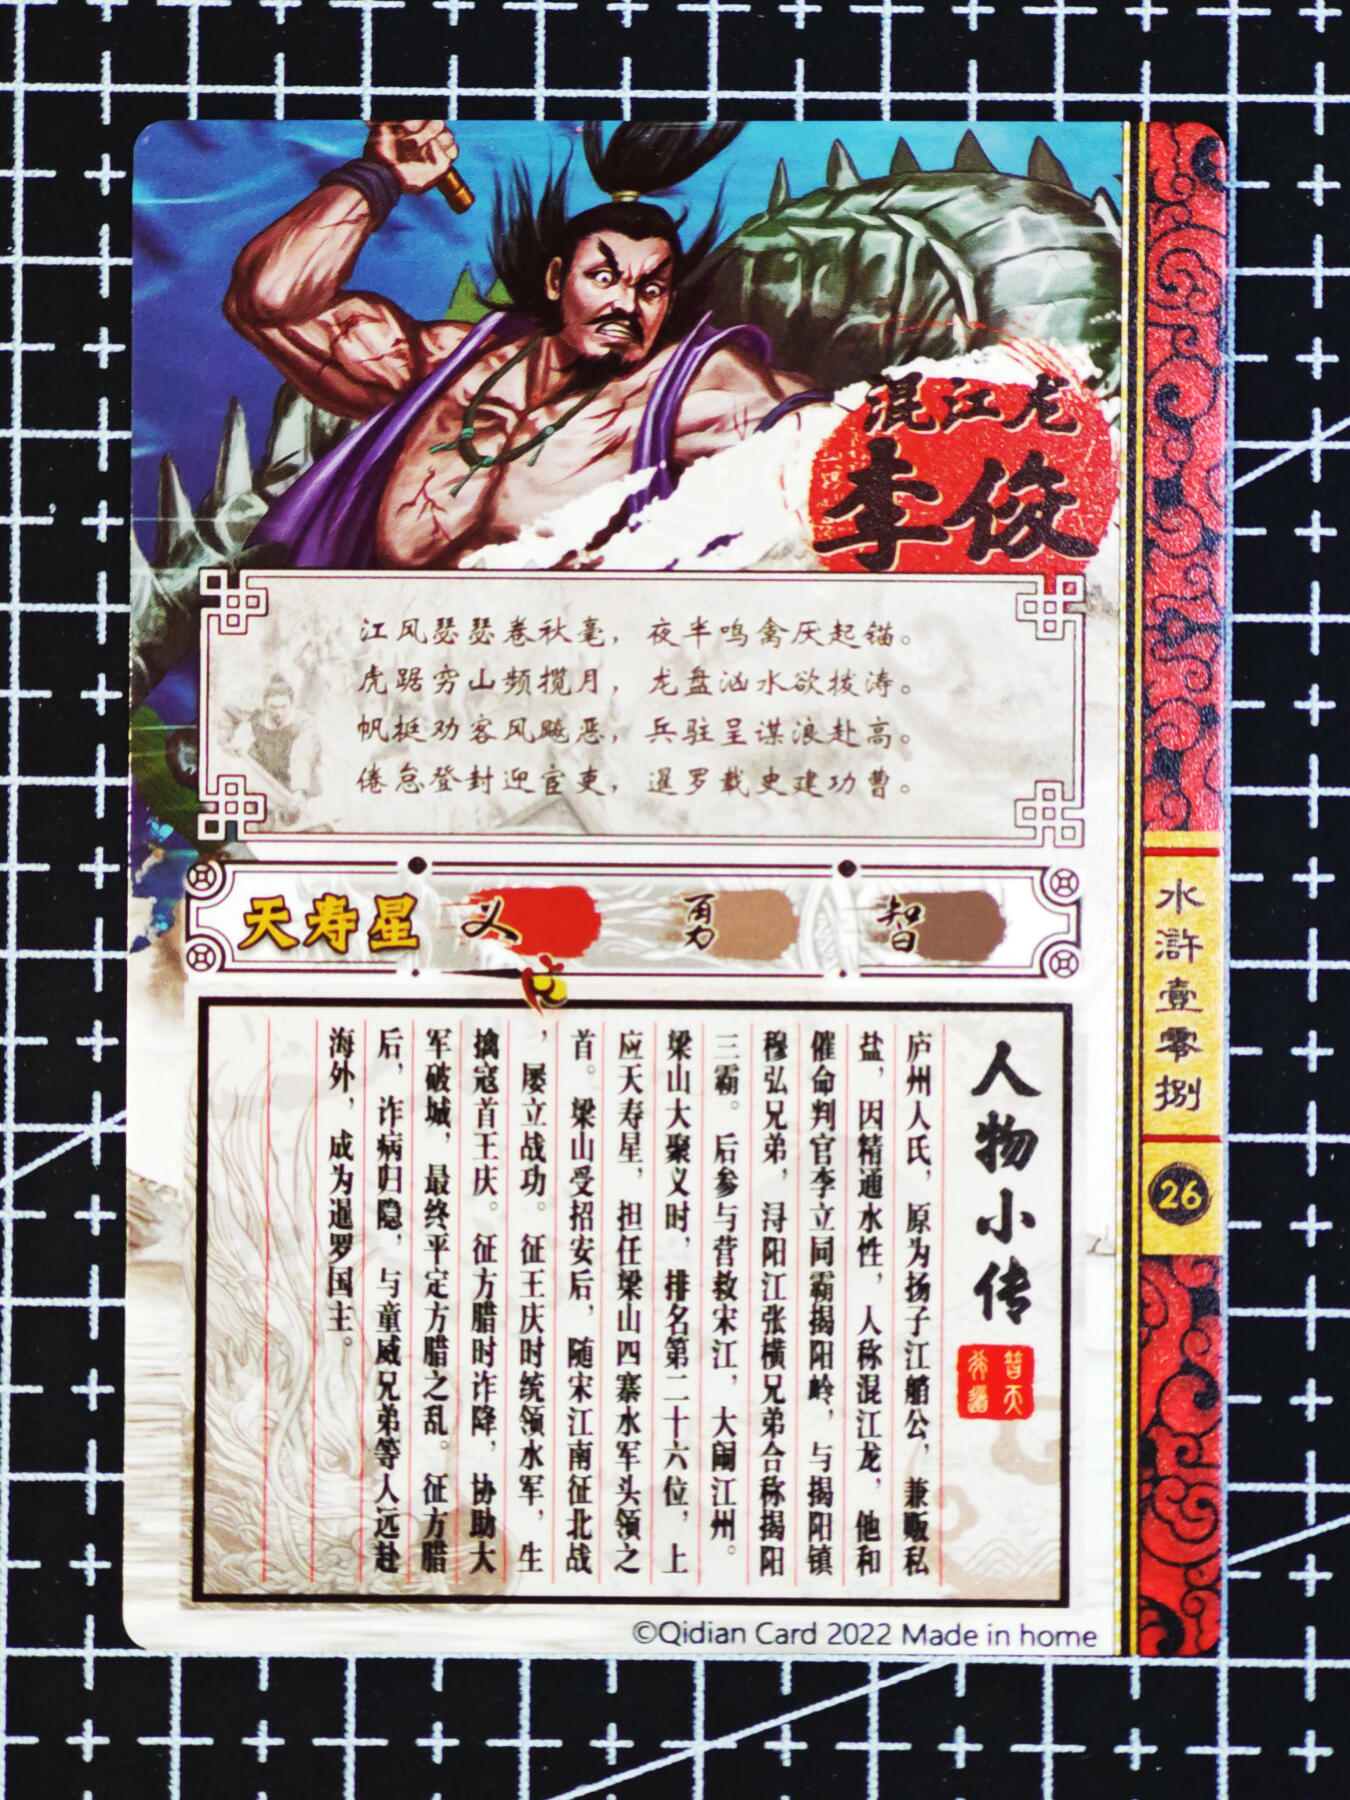 混江龙
李俊
江风瑟瑟卷秋毫，夜半鸣禽厌起锚。
虎踞穷山频揽月，龙盘汹水欲拔涛。
帆挺劝客风飚恶，兵驻呈谋浪赴高。
倦怠登封迎宦吏，暹罗载史建功曹。
天寿星
义
勇
智
人物小传
替天
行道
庐州人氏，原为扬子江艄公，兼贩私
盐，因精通水性，人称混江龙，他和
催命判官李立同霸揭阳岭，与揭阳镇
穆弘兄弟，浔阳江张横兄弟合称揭阳
三霸。后参与营救宋江，大闹江州。
梁山大聚义时，排名第二十六位，上
应天寿星，担任梁山四寨水军头领之
首。梁山受招安后，随宋江南征北战
，屡立战功。征王庆时统领水军，生
擒寇首王庆。征方腊时诈降，协助大
军破城，最终平定方腊之乱。征方腊
后，诈病归隐，与童威兄弟等人远赴
海外，成为暹罗国主。
水浒壹零捌
26
©Qidian Card 2022 Made in home